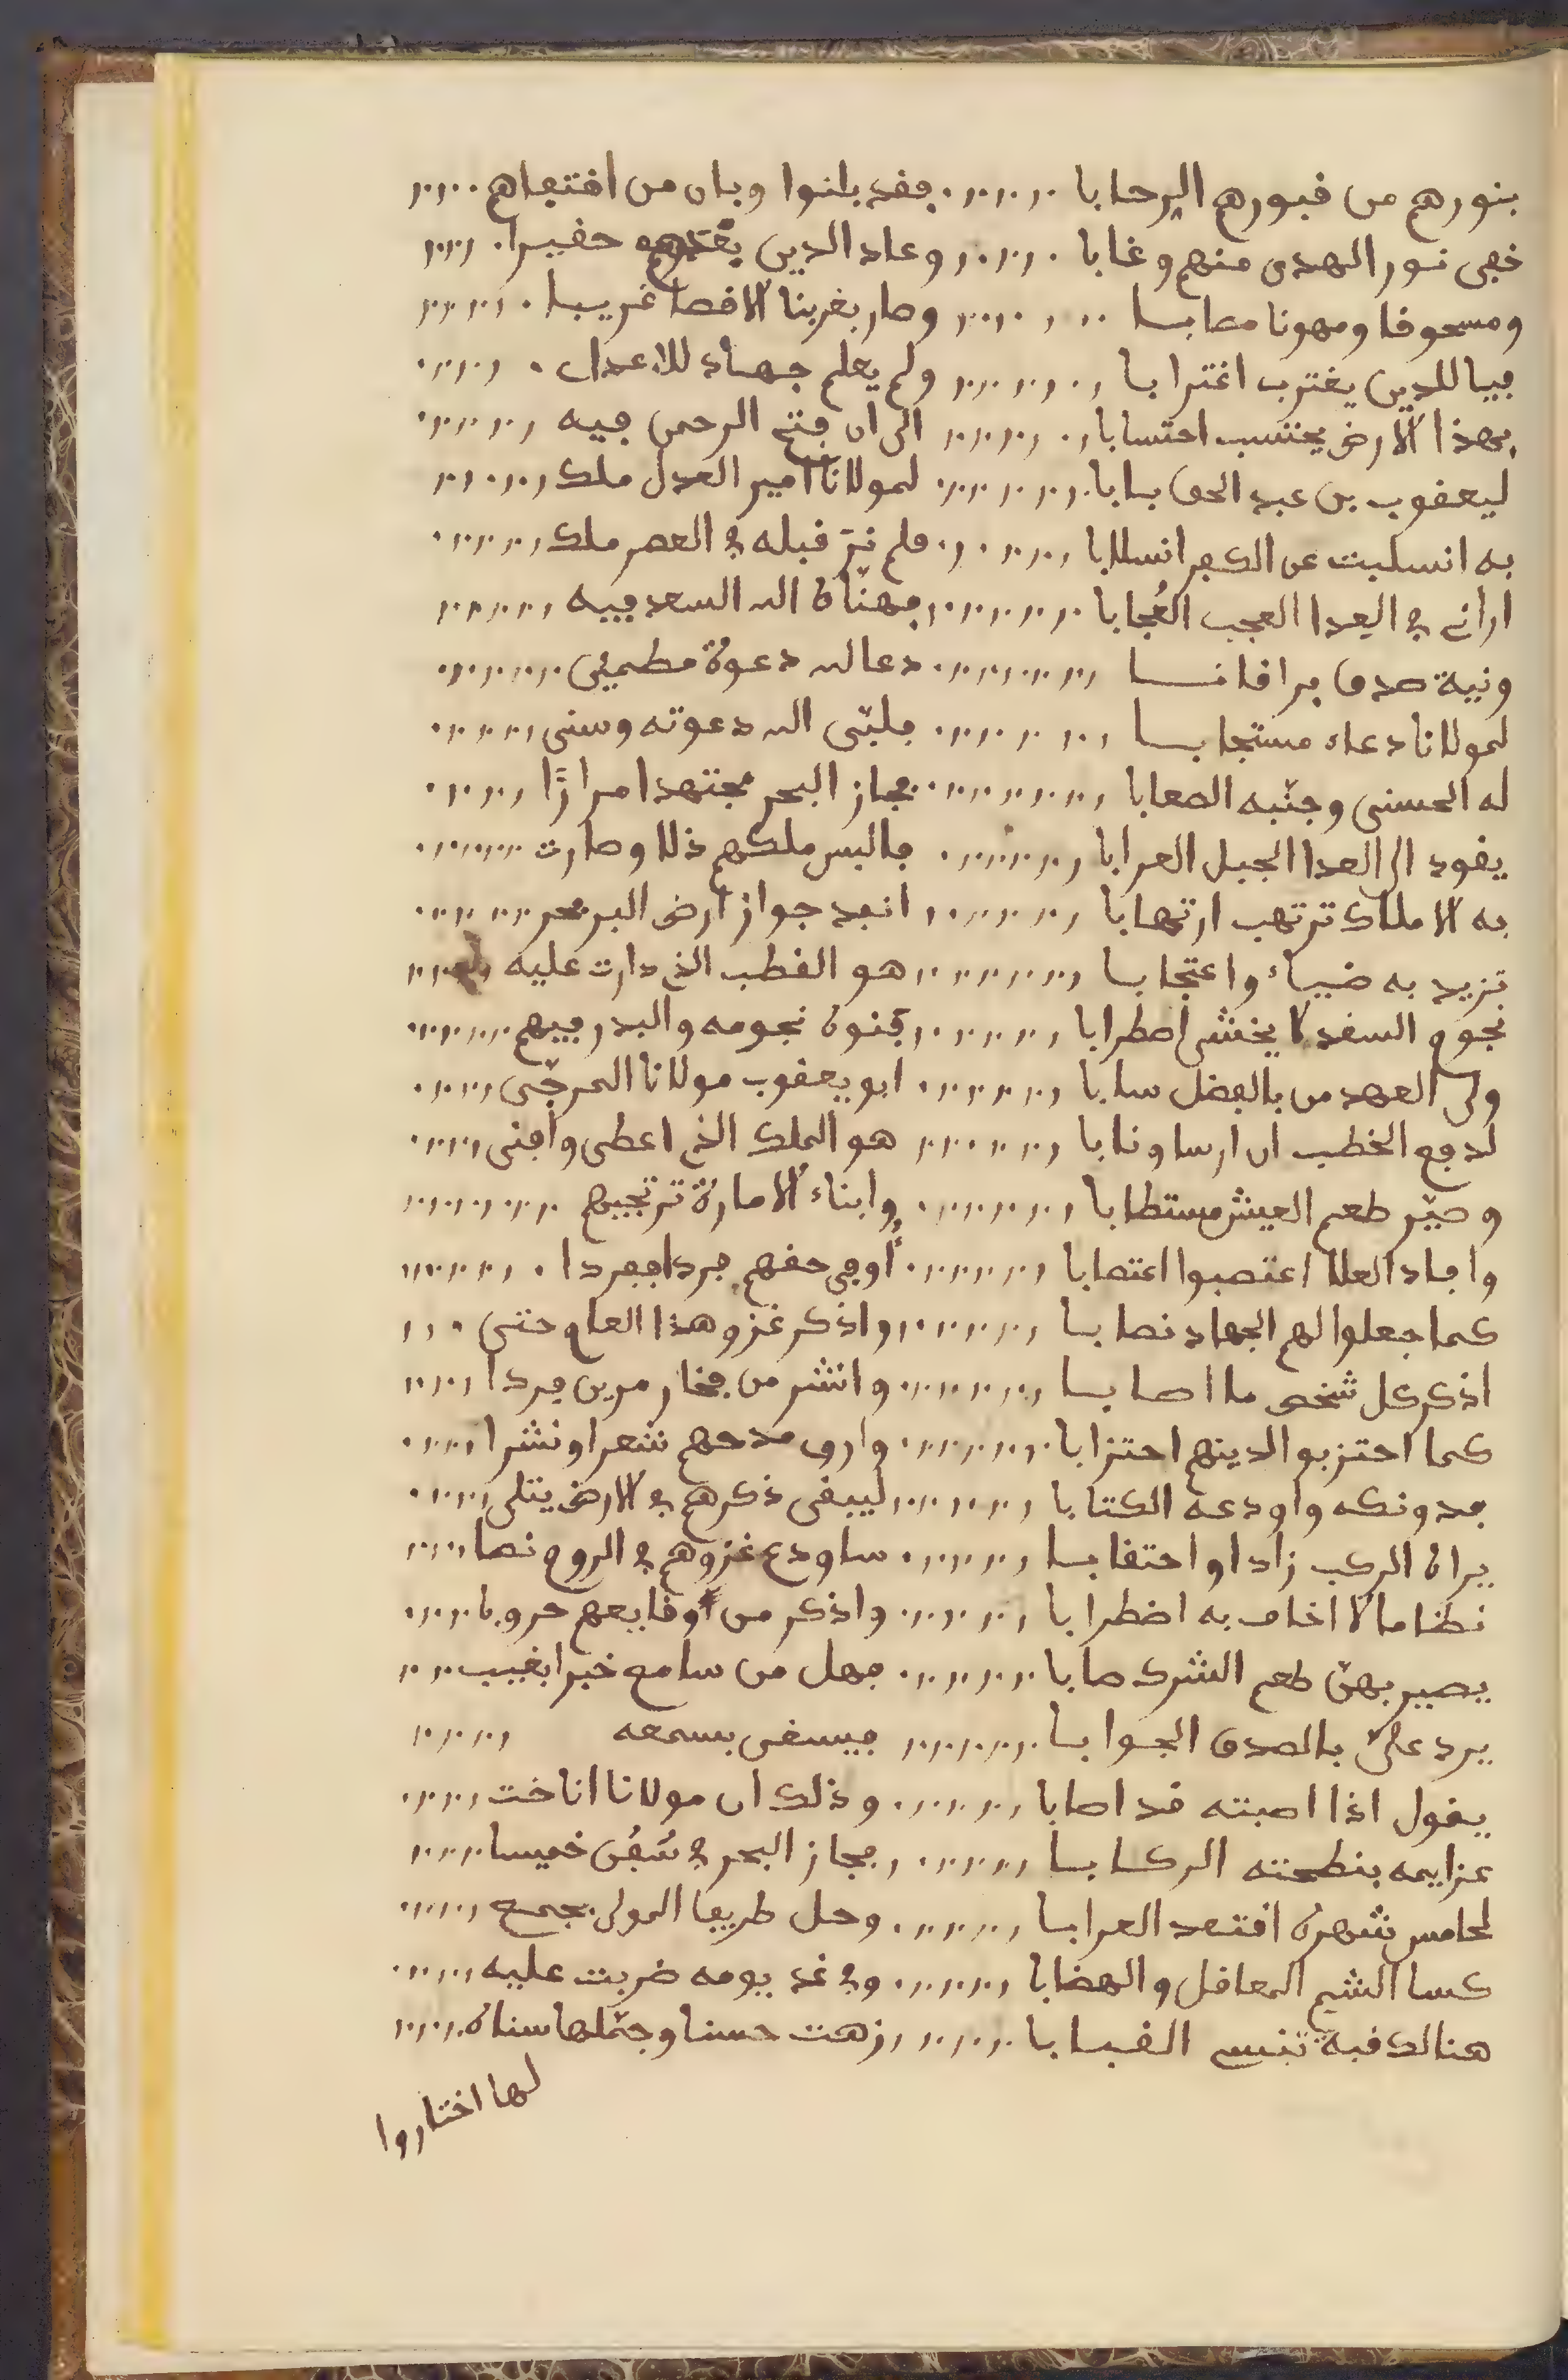 بنورهم من قبورهم الرحابا فقد بانوا وبان من اقتفاهم
خفى نور الهدى منهم وغابا وعاد الدين بعدهم حقيرا
ومسحوقا ومهونا مصابا وصار بغربنا الاقصا غريبا
فيا للدين يغترب اغترابا ولم يعلم جهاد للاعداء
بهذا الارض يحتسب احتسابا الى ان فتح الرحمن فيه
ليعقوب بن عبد الحق بابا لمولانا امير العدل ملك
به انسلبت عن الكفر انسلابا فلم نر قبله في العصر ملك
اراني في العدا العجب العُجابا فهناه الله السعد فيه
ونية صدق دعا لله دعوة مطمين
لمولانا دعاء مستجابا فلبّى الله دعوته وسنى
له الحسنى وجنّبه الصعابا فجاز البحر مجتهدا مرارًا
يقود الى العدا الخيل العرابا فالبس ملكهم ذلا وصارت
به الاملاك ترتهب ارتهابا ابعد جواز ارض البر بحر
تزيد به ضياء واعتجابا هو القطب الذي دارت عليه
نجوم السعد لا يخشى اضطرابا بنوه نجومه والبدر فيهم
ولى العهد من بالفضل سابا ابو يعقوب مولانا المرجّى
لدفع الخطب ان ارسا ونابا هو الملك الذي اعطى واقنى
وصيّر طعم العيش مستطابا وابناء الامارة ترتجيهم
واجاد العلا اعتصبوا اعتصابا أوفي حقهم فردا ففردا
كما جعلوا لهم الجهاد نصابا واذكر غزو هذا العام حتى
اذكر كل شخص ما اصابا وانشر من فخار مرين فردا
كما احتزبوا لدينهم احتزابا واروى مدحهم شعرا ونشرا
فدونكه واودعه الكتابا ليبقى ذكرهم في الارض يتلى
يراه الركب زادا واحتقابا ساودع غزوهم في الروم نصا
نظاما لا اخاف به اضطرابا واذكر من وقايعهم حروبا
يصير بهنّ طعم الشرك صابا فهل من سامع خبرا بغيب
يرد عليّ بالصدق الجوابا فيسغى بسمعه
يقول اذا اصبته قد اصابا وذلك ان مولانا اناخت
عزايمه بنطحته الركابا فجاز البحر في سُفُن خميسا
لخامس شهره اقتعد العرابا وحل طريفا المولى بجمع
كسا الشم المعاقل والهضابا وفي غد يومه ضربت عليه
هنالك قبة تنسي القبابا زهت حسنا وجمّلها سناه
لها اختاروا